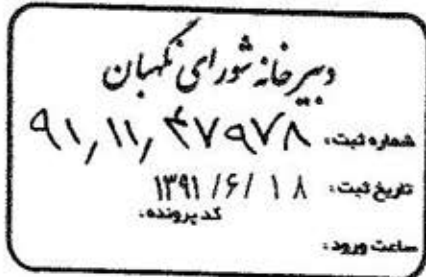 دبیرخانه شورای نگهبان
شماره ثبت: ۹۱/۱۱/۴۷۹۷۸
تاریخ ثبت: ۱۳۹۱/۶/۱۸
کد پرونده:
ساعت ورود: